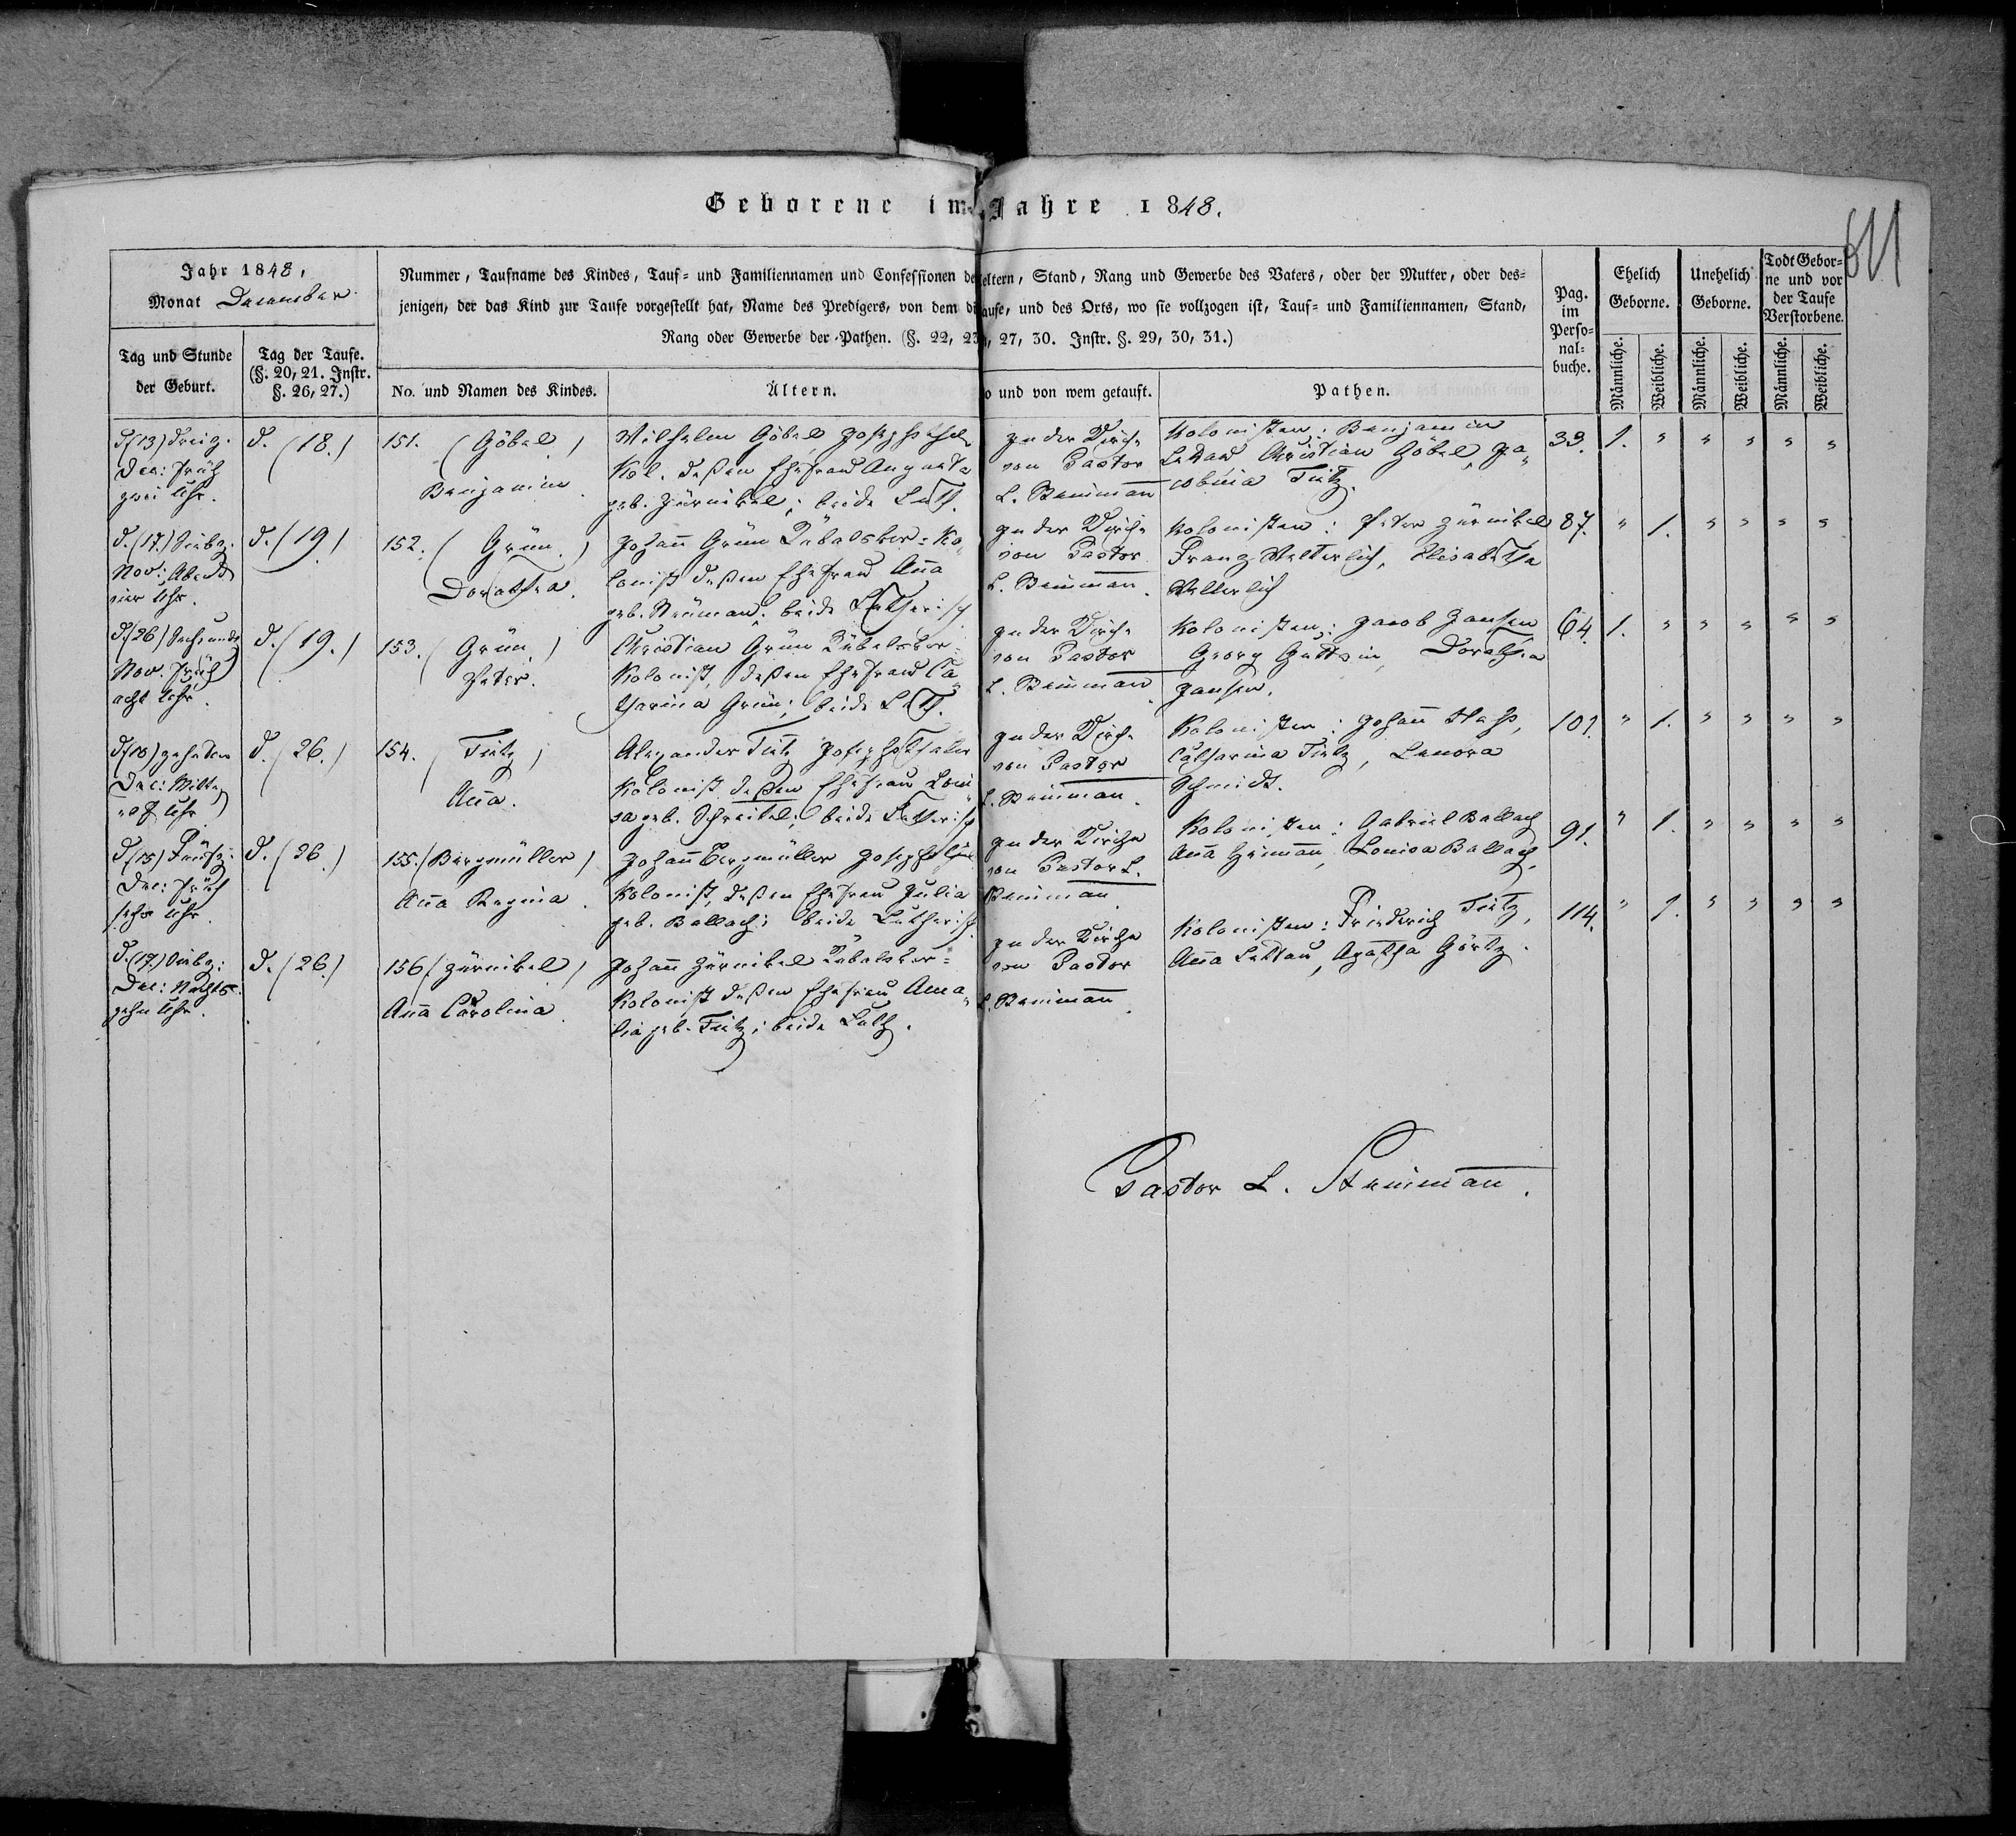 Geborene im Jahre 1848.
611
Jahr 1848,
Monat December
Nummer, Taufname des Kindes, Tauf= und Familiennamen und Confessionen de eltern, Stand, Rang und Gewerbe des Vaters, oder der Mutter, oder des=
jenigen, der das Kind zur Taufe vorgestellt hat, Name des Predigers, von dem di aufe, und des Orts, wo sie vollzogen ist, Tauf= und Familiennamen, Stand,
Rang oder Gewerbe der Pathen. (§. 22, 23, 27, 30. Instr. §. 29, 30, 31.)
Pag. im Perso= nal= buche.
Ehelich Geborne.
Unehelich Geborne.
Todt Gebor= ne und vor der Taufe Verstorbene.
Tag und Stunde der Geburt.
Tag der Taufe. (§. 20, 21. Instr. §. 26, 27.)
No. und Namen des Kindes.
Ältern.
o und von wem getauft.
Pathen.
Männliche. Weibliche. Männliche. Weibliche. Männliche. Weibliche.
d. (13) dreiz.
Dec: früh
zwei Uhr.
d. (18.)
151. (Göbel)
Benjamin.
Wilhelm Göbel Josephsthal.
Kol. deßen Ehefrau Augusta
geb. Zürnikel; beide Luth.
In der Kirche
von Pastor
L. Steinmann
Kolonisten: Benjamin
Lettau Christian Göbel, Ja„
cobina Tietz.
33. 1. " " " " "
d. (17.) Siebz.
Nov: Abends
vier Uhr.
d. (19)
152. (Grün.)
Dorothea.
Johann Grün Ribalsker=Ko„
lonist deßen Ehefrau Anna
geb. Neümann; beide Lutherisch
In der Kirche
von Pastor
L. Steinmann.
Kolonisten: Peter Zürnikel
Franz Welterlich, Elisabetha
Welterlich
87. " 1. " " " "
d. (26) Sechsundz
Nov. früh
acht Uhr.
d. (19.)
153. (Grün)
Peter.
Christian Grün Ribalsker=
Kolonist, deßen Ehefrau Ca„
tharina Grün; beide Luth.
In der Kirche
von Pastor
L. Steinmann
Kolonisten: Jacob Jansen
Georg Dorothea
Jansen.
64. 1. " " " " "
d. (10) zehnten
Dec: Mitta„
Uhr
d. (26.)
154. (Tietz)
Anna.
Alexander Tietz Josephsthaler
Kolonist deßen Ehefrau Loui„
sa geb. beide Lutherisch
In der Kirche
von Pastor
L. Steinmann.
Kolonisten: Johann Haß,
Catharina Tietz, Lenora
Schmidt.
101. " 1. " " " "
d. (15) Fünfz:
Dec: früh
sechs Uhr.
d. (26.)
155. (Bergmüller)
Anna Regina.
Johann Bergmüller Josephsthaler
Kolonist, deßen Ehefrau Julia
geb. Ballach; beide Lutherisch.
In der Kirche
von Pastor L.
Steinmann.
Kolonisten: Gabriel Ballach
Anna Louisa Ballach.
91. " 1. " " " "
d. (17.) Siebz:
Dec: Nachts
zehn Uhr.
d. (26.)
156. (Zürnikel)
Anna Carolina.
Johann Zürnikel Ribalsker=
Kolonist deßen Ehefrau Ama„
lia geb. Tietz; beide Luth.
In der Kirche
von Pastor
L. Steinmann.
Kolonisten: Friederich Tietz,
Anna Lettau, Agatha Görtz.
114. " 1. " " " "
Pastor L. Steinmann.